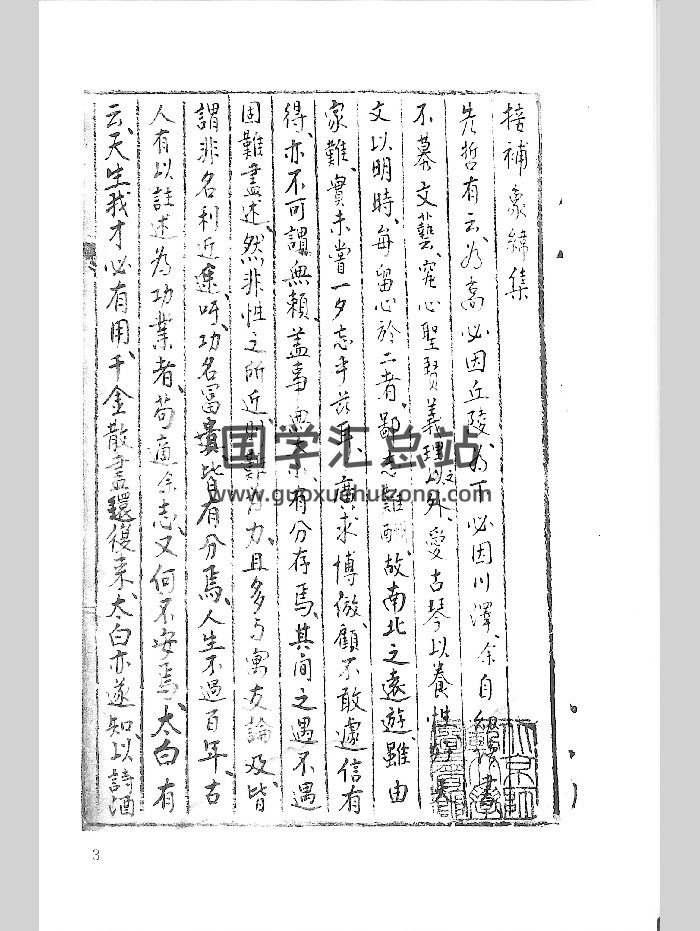 接補象緯集
先哲有云、為高必因丘陵、為下必因川澤、余自幼讀書
不慕文藝、究心聖賢義理以外、愛古琴以養性
文以明時、每留心於二者、鄙志難酬、故南北之遠遊、雖由
家難、實未嘗一夕忘乎茲耳、廣求博倣、顧不敢遽信有
得、亦不可謂無賴、蓋事 有分存焉、其間之遇不遇
固難盡述、然非性之所近則難為力、且多与寓友論及、皆
謂非名利近途、吁、功名富貴、皆有分焉、人生不過百年、古
人有以註述為功業者、苟適余志、又何不安焉、太白有
云、天生我才必有用、千金散盡還復来、太白亦遂知以詩酒
国学汇总站
www.guoxuehuizong.com
3